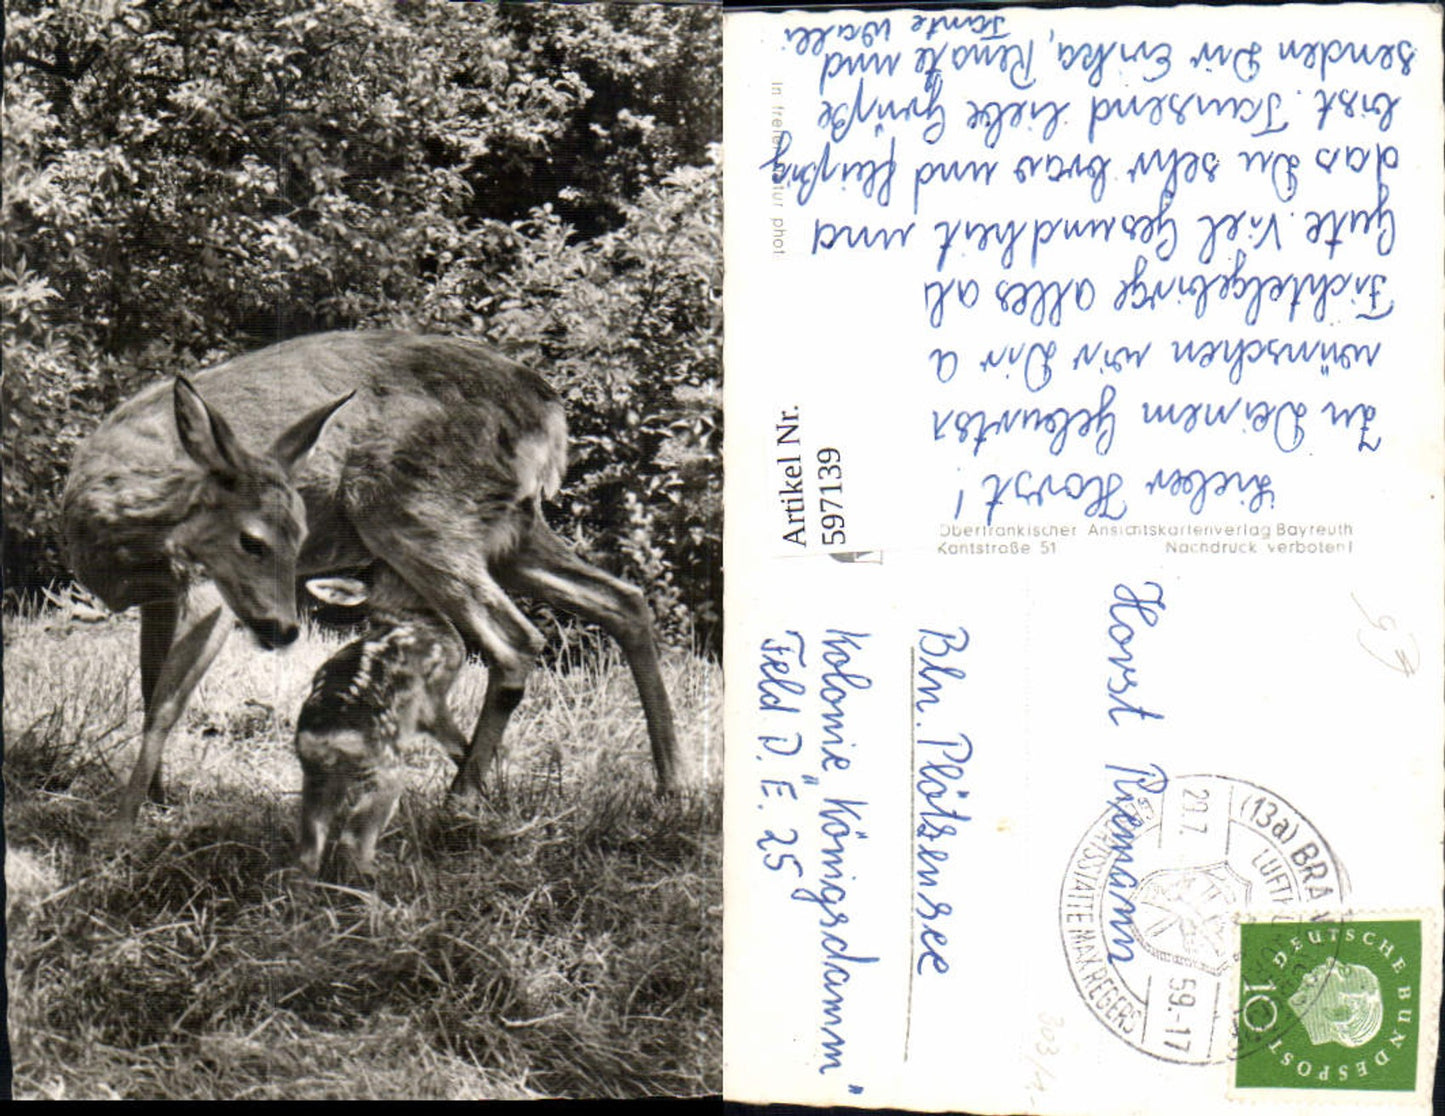 Lieber Horst!
Zu Deinem Geburtst
wünschen wir Dir a
Fichtelgebirge alles ali
Gute. Viel Gesundheit und
das Du sehr brav und fleißig
bist. Tausend liebe Grüße
senden Dir Erika, Renate und
Tante Walli
In freier Natur phot.
Artikel Nr.
597139
Oberfränkischer Ansichtskartenverlag Bayreuth
Kantstraße 51 Nachdruck verboten!
Horst Riemann
Bln. Plötzensee
Kolonie „Königsdamm"
Feld D. E. 25
(13a) BRA
LUFTKUROR
29.7.
59.-17
SCHAFFENSSTÄTTE MAX REGERS
DEUTSCHE BUNDESPOST
10
303/4.-